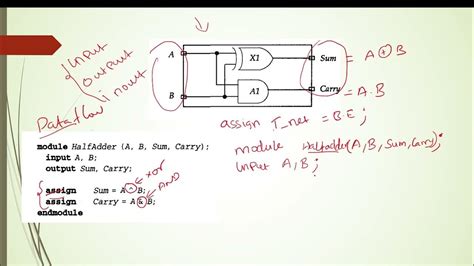 Input
output
inout
Dataflow
A
B
X1
A1
Sum = A ⊕ B
Carry = A.B
assign T_net = B E ;
module Halfadder (A, B, Sum, Carry);
Input A, B ;
module HalfAdder (A, B, Sum, Carry);
input A, B;
output Sum, Carry;
assign Sum = A ^ B; Exor
assign Carry = A & B; AND
endmodule